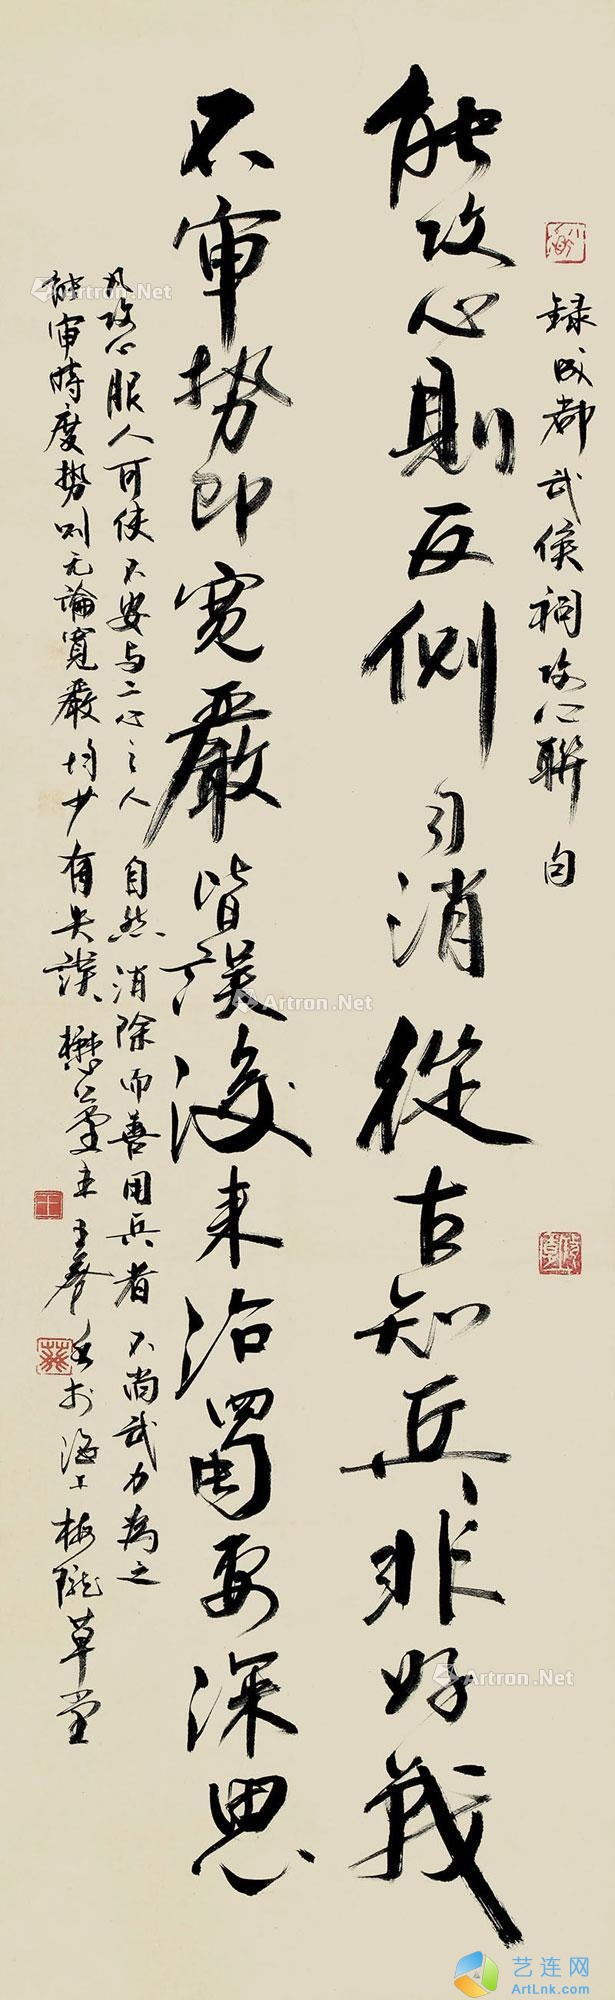 録成都武侯祠攻心聯句
能攻心則反側自消從古知兵非好戰
不审势即宽嚴皆誤後来治蜀要深思
凡攻心服人可使不安与二心之人自然消除而善用兵者不尚武力為之
能审時度势则无論寬嚴均少有失誤懋公堂主王孝於海上梅隴草堂
Artron.Net
Artron.Net
Artron.Net
艺连网
ArtLnk.com